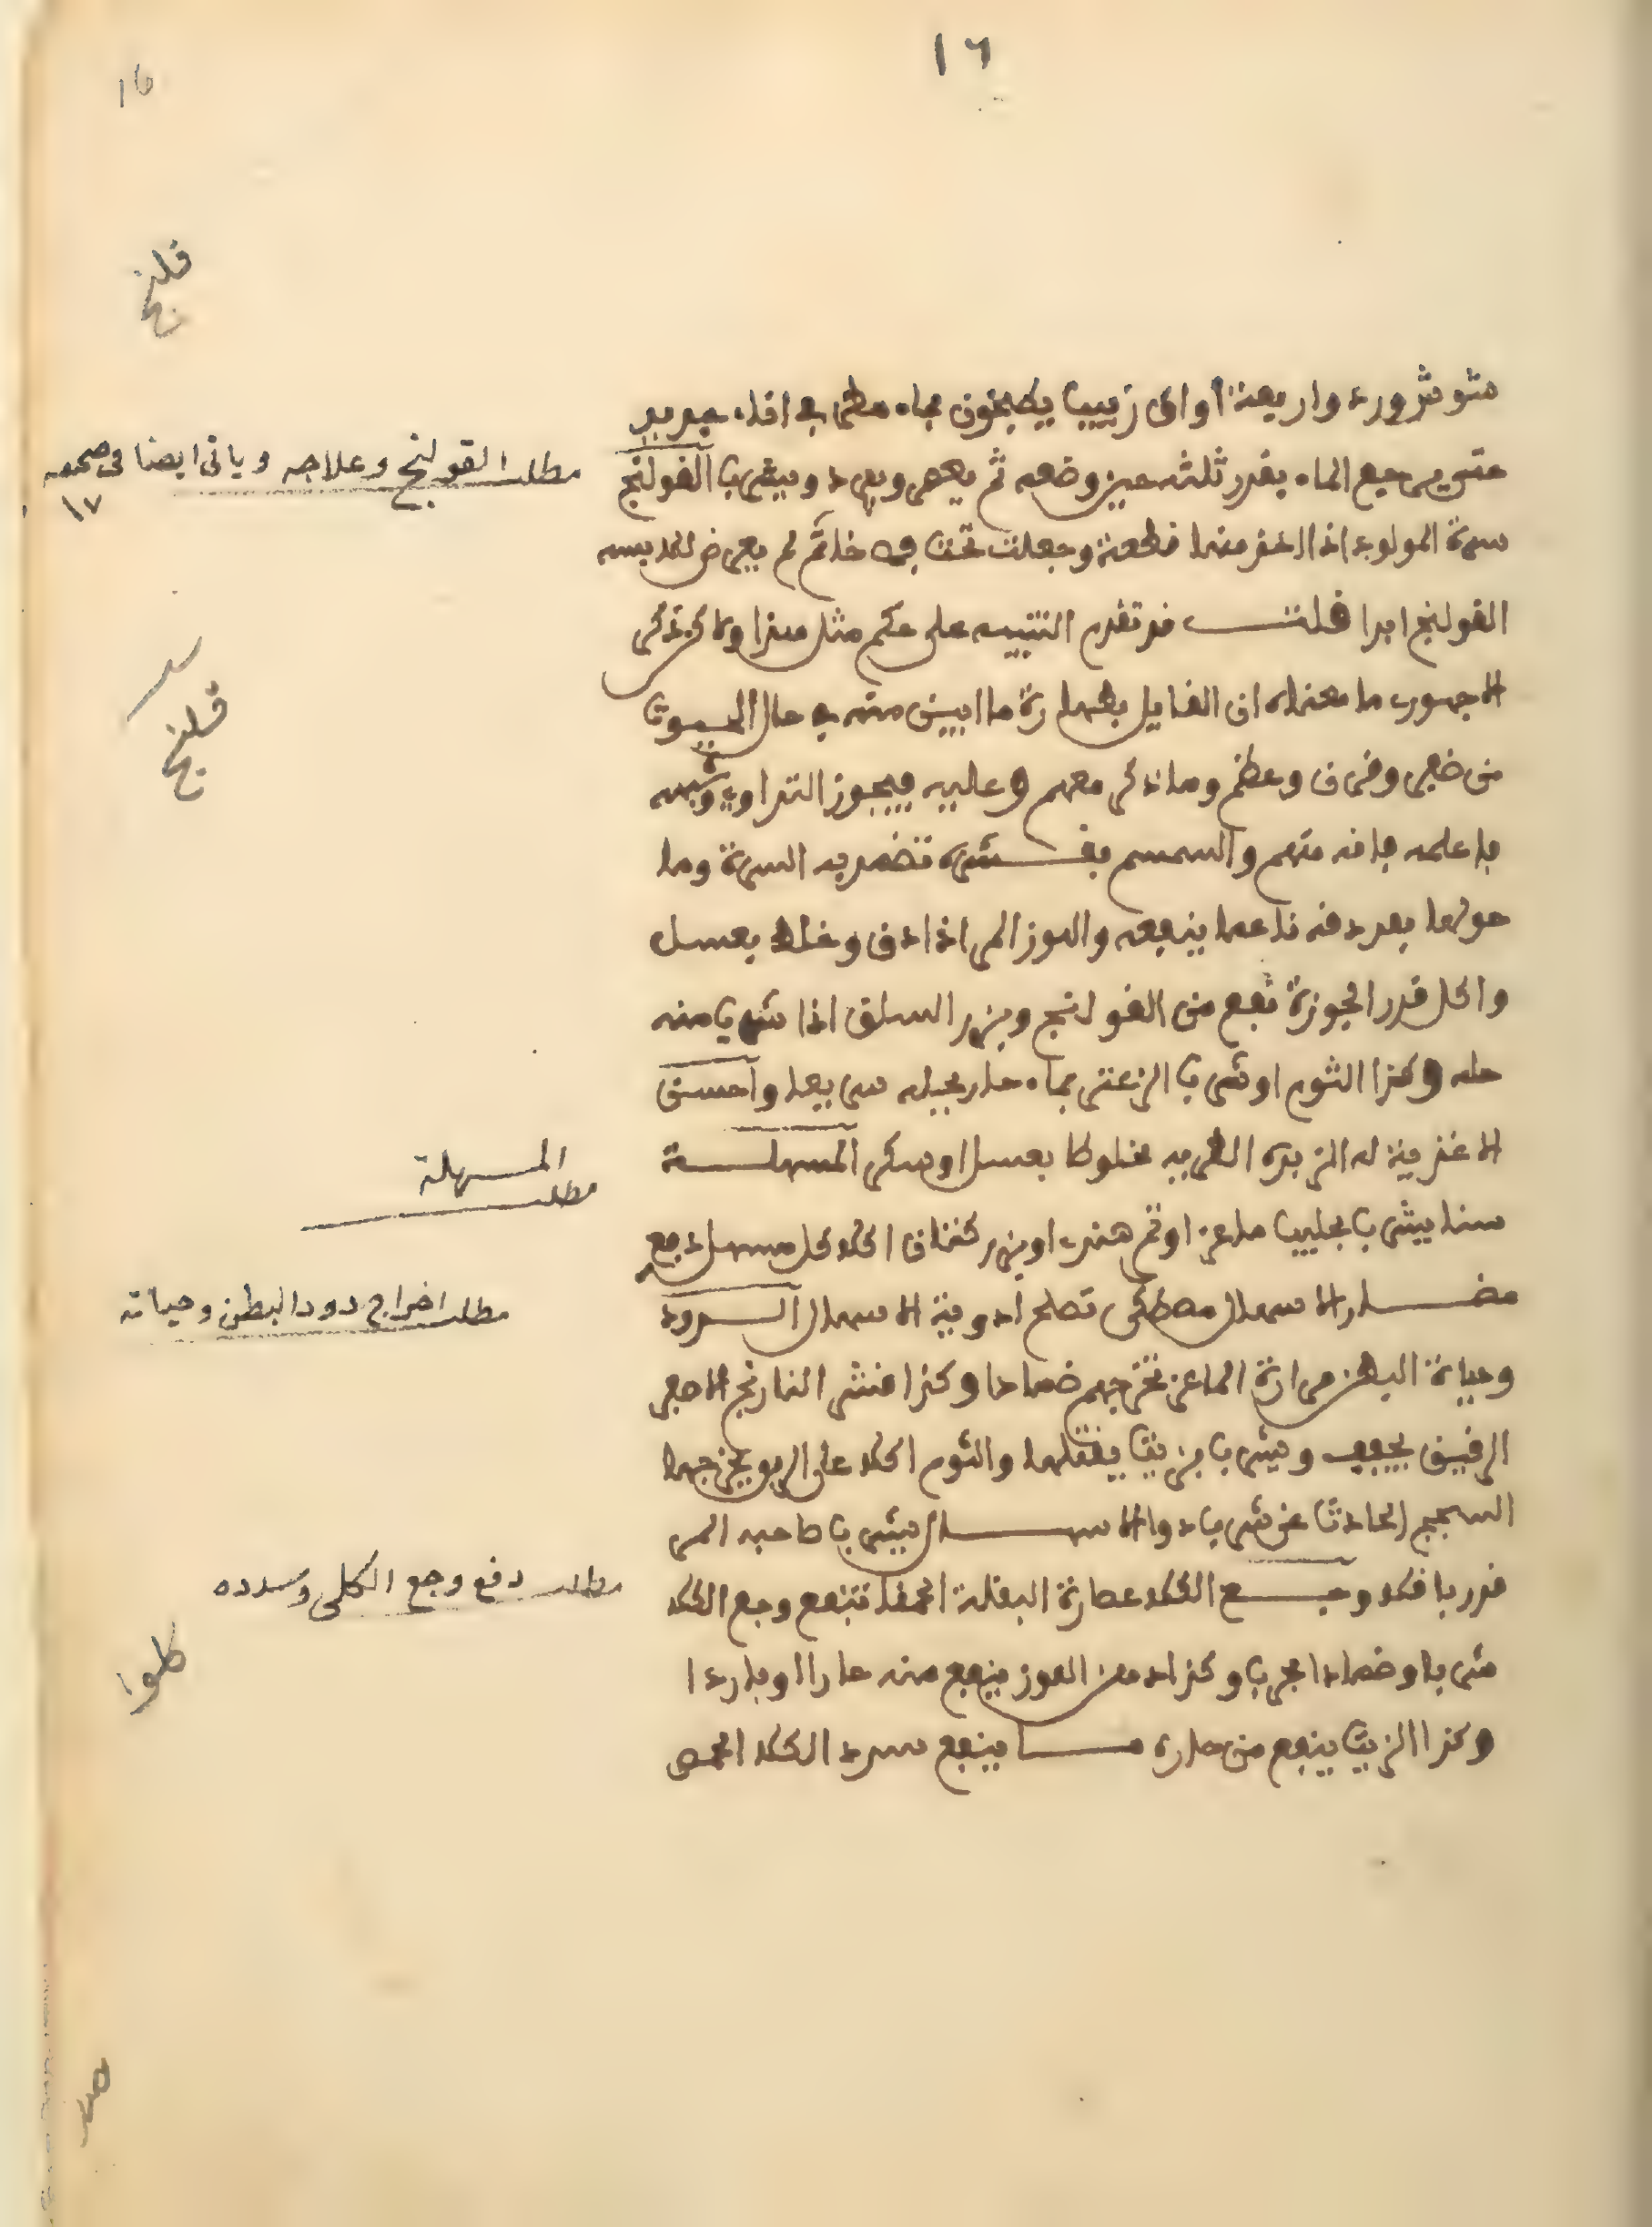 ١٦
16
قلنج
مثوثرورد واربعة أواق زبيبا يطبخون بماء مطر في اناء جديد
حتى يرجع الماء بقدر ثلثه حين وضعه ثم يعصر ويبرد ويشرب القولنج
مطلب القولنج وعلاجه وياتى ايضا فى صحيفه
١٧
سرة المولود اذا اخذ منها قطعة وجعلت تحت فص خاتم لم يعرض للابسه
القولنج ابدا قلت قد تقدم التنبيه على حكم مثل هذا وما كر ذكر
قلنج
الاجهوري ما معناه ان القايل بطهارة ما ابين منه في حال الحيوة
من ضفر وقرن وعظم وما ذكر معهم وعليه فيجوز التداوي وشبهه
بما علمه فانه منهم والسمسم بقشره تضمد به السرة وما
حولها بعد دقه ناعما ينفعه واللوز المر اذا دق وخلط بعسل
واكل قدر الجوزة نفع من القولنج وبزر السلق اذا شرب منه
حله وكذا الثوم او شرب الزعتر بماء حار يحيله سريعا واحسن
الاغذية له الزبدة الطرية مخلوطا بعسل او سكر المسهلة
المسهلة
مطلب
سنا يشرب بحليب ماعز او تمر هندي او بزر كتان اكلا كل مسهل دفع
مضار الاسهال مصطكى تصلح ادوية الاسهال الدود
مطلب اخراج دود البطن وحياته
وحياة البطن مرارة الماعز تخرجهم ضمادا وكذا قشر النارنج الاصفر
الرقيق يجفف ويشرب بزيت يقتلها والثوم اكلا على الريق يخرجها
السحج الحادث عن شرب دواء الاسهال يشرب صاحبه المر
قدر باقلا وجع الكلا عصارة البقلة الحمقا تنفع وجع الكلا
مطلب دفع وجع الكلى وسدده
شربا وضمادا مجرب وكذا دهن اللوز ينفع منه حارا او باردا
كلوا
وكذا الزيت ينفع من حاره ما ينفع سدد الكلا الحمص